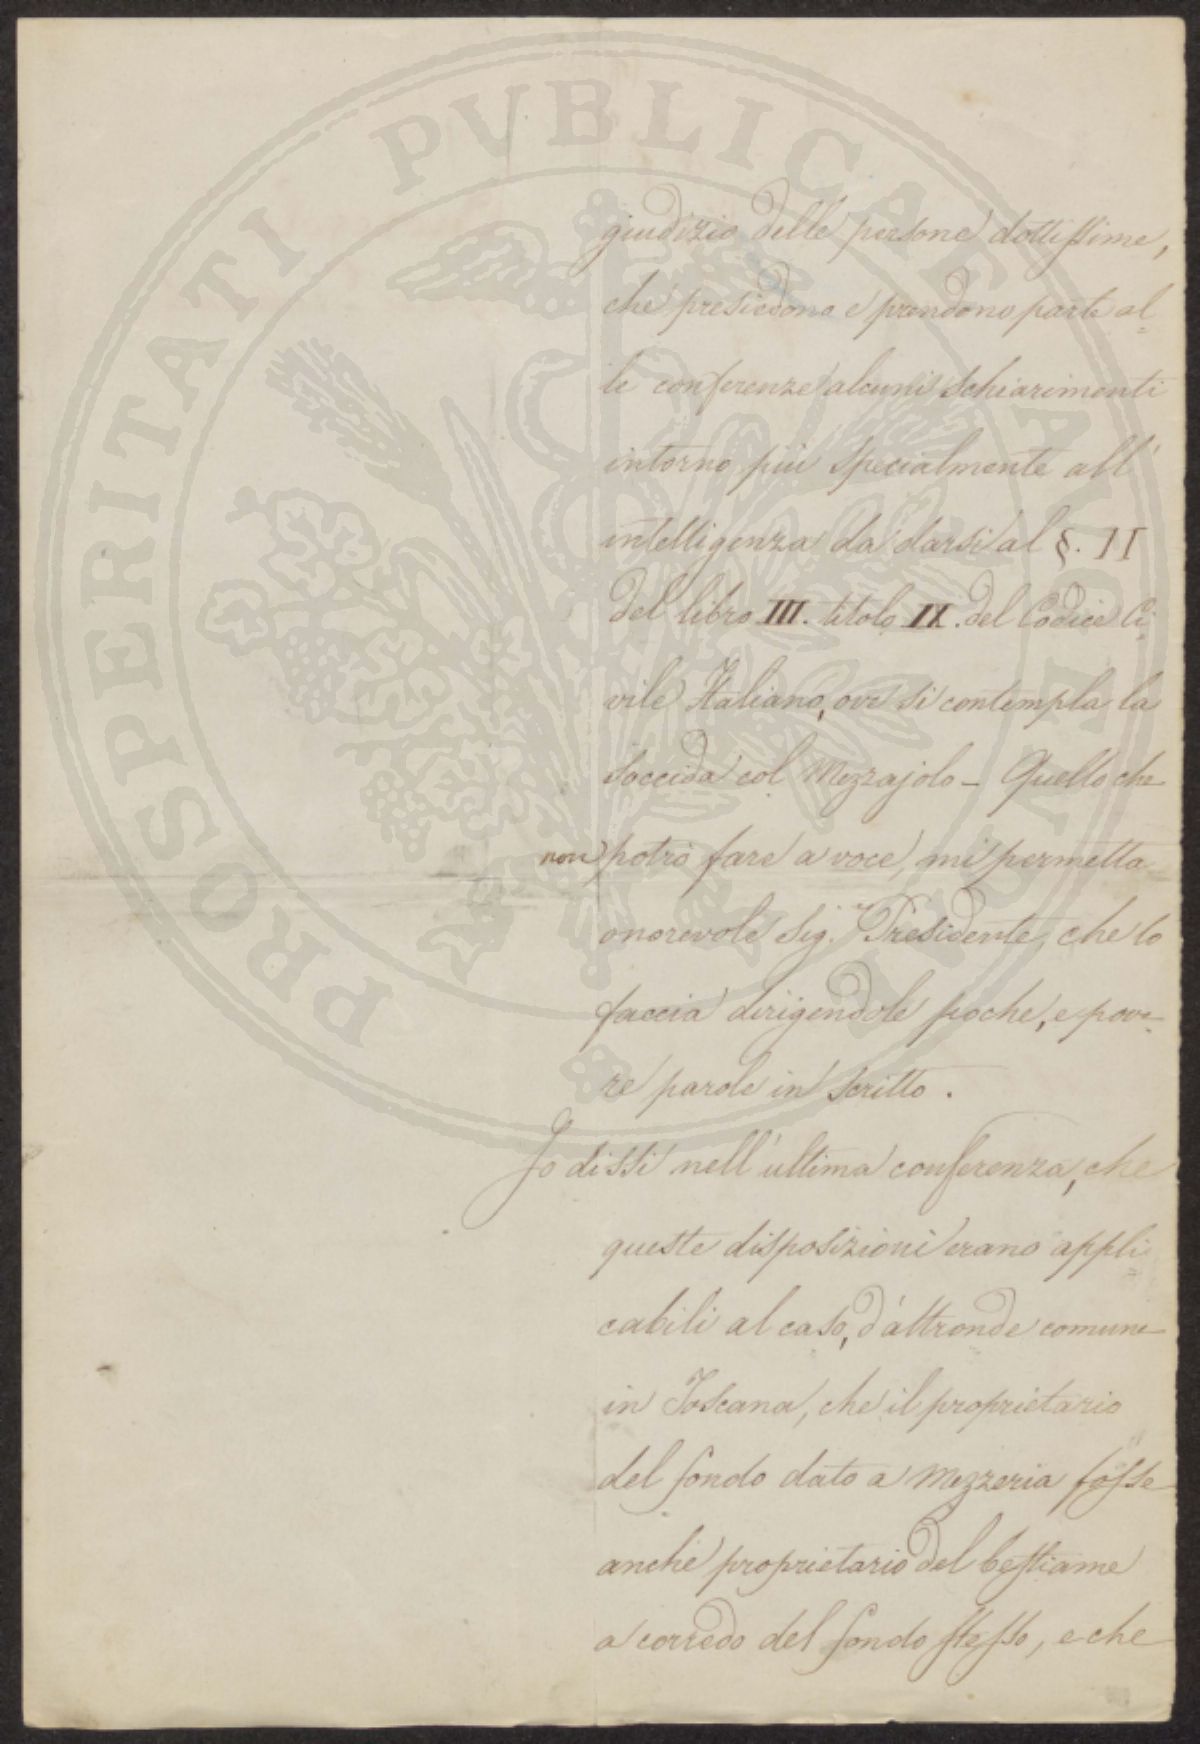 PROSPERITATI PVBLICAE AVGENDAE
giudizio delle persone dottissime,
che presiedono e prendono parte al=
le conferenze alcuni schiarimenti
intorno più specialmente all'
intelligenza da darsi al §. II
del libro III. titolo IX. del Codice Ci=
vile Italiano, ove si contempla la
soccida col Mezzajolo – Quello che
non potrò fare a voce, mi permetta
onorevole Sig.r Presidente, che lo
faccia dirigendole poche, e pove=
re parole in scritto.
Io dissi nell'ultima conferenza, che
queste disposizioni erano appli=
cabili al caso, d'altronde comune
in Toscana, che il proprietario
del fondo dato a Mezzeria fosse
anche proprietario del bestiame
a corredo del fondo stesso, e che